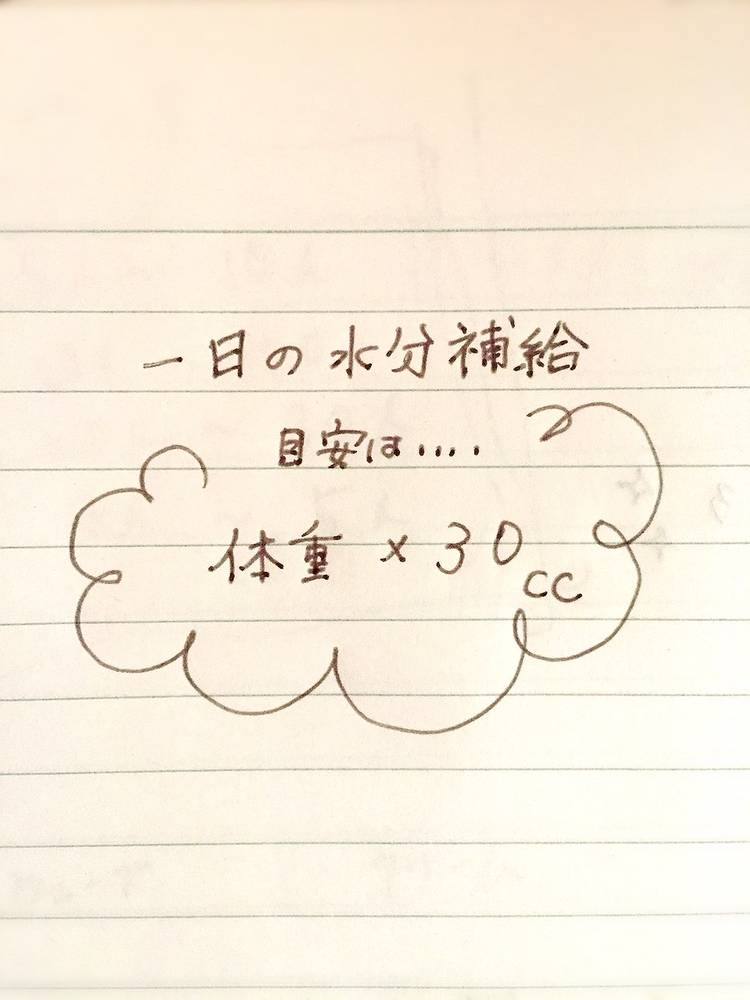 一日の水分補給
目安は....
体重 × 30cc